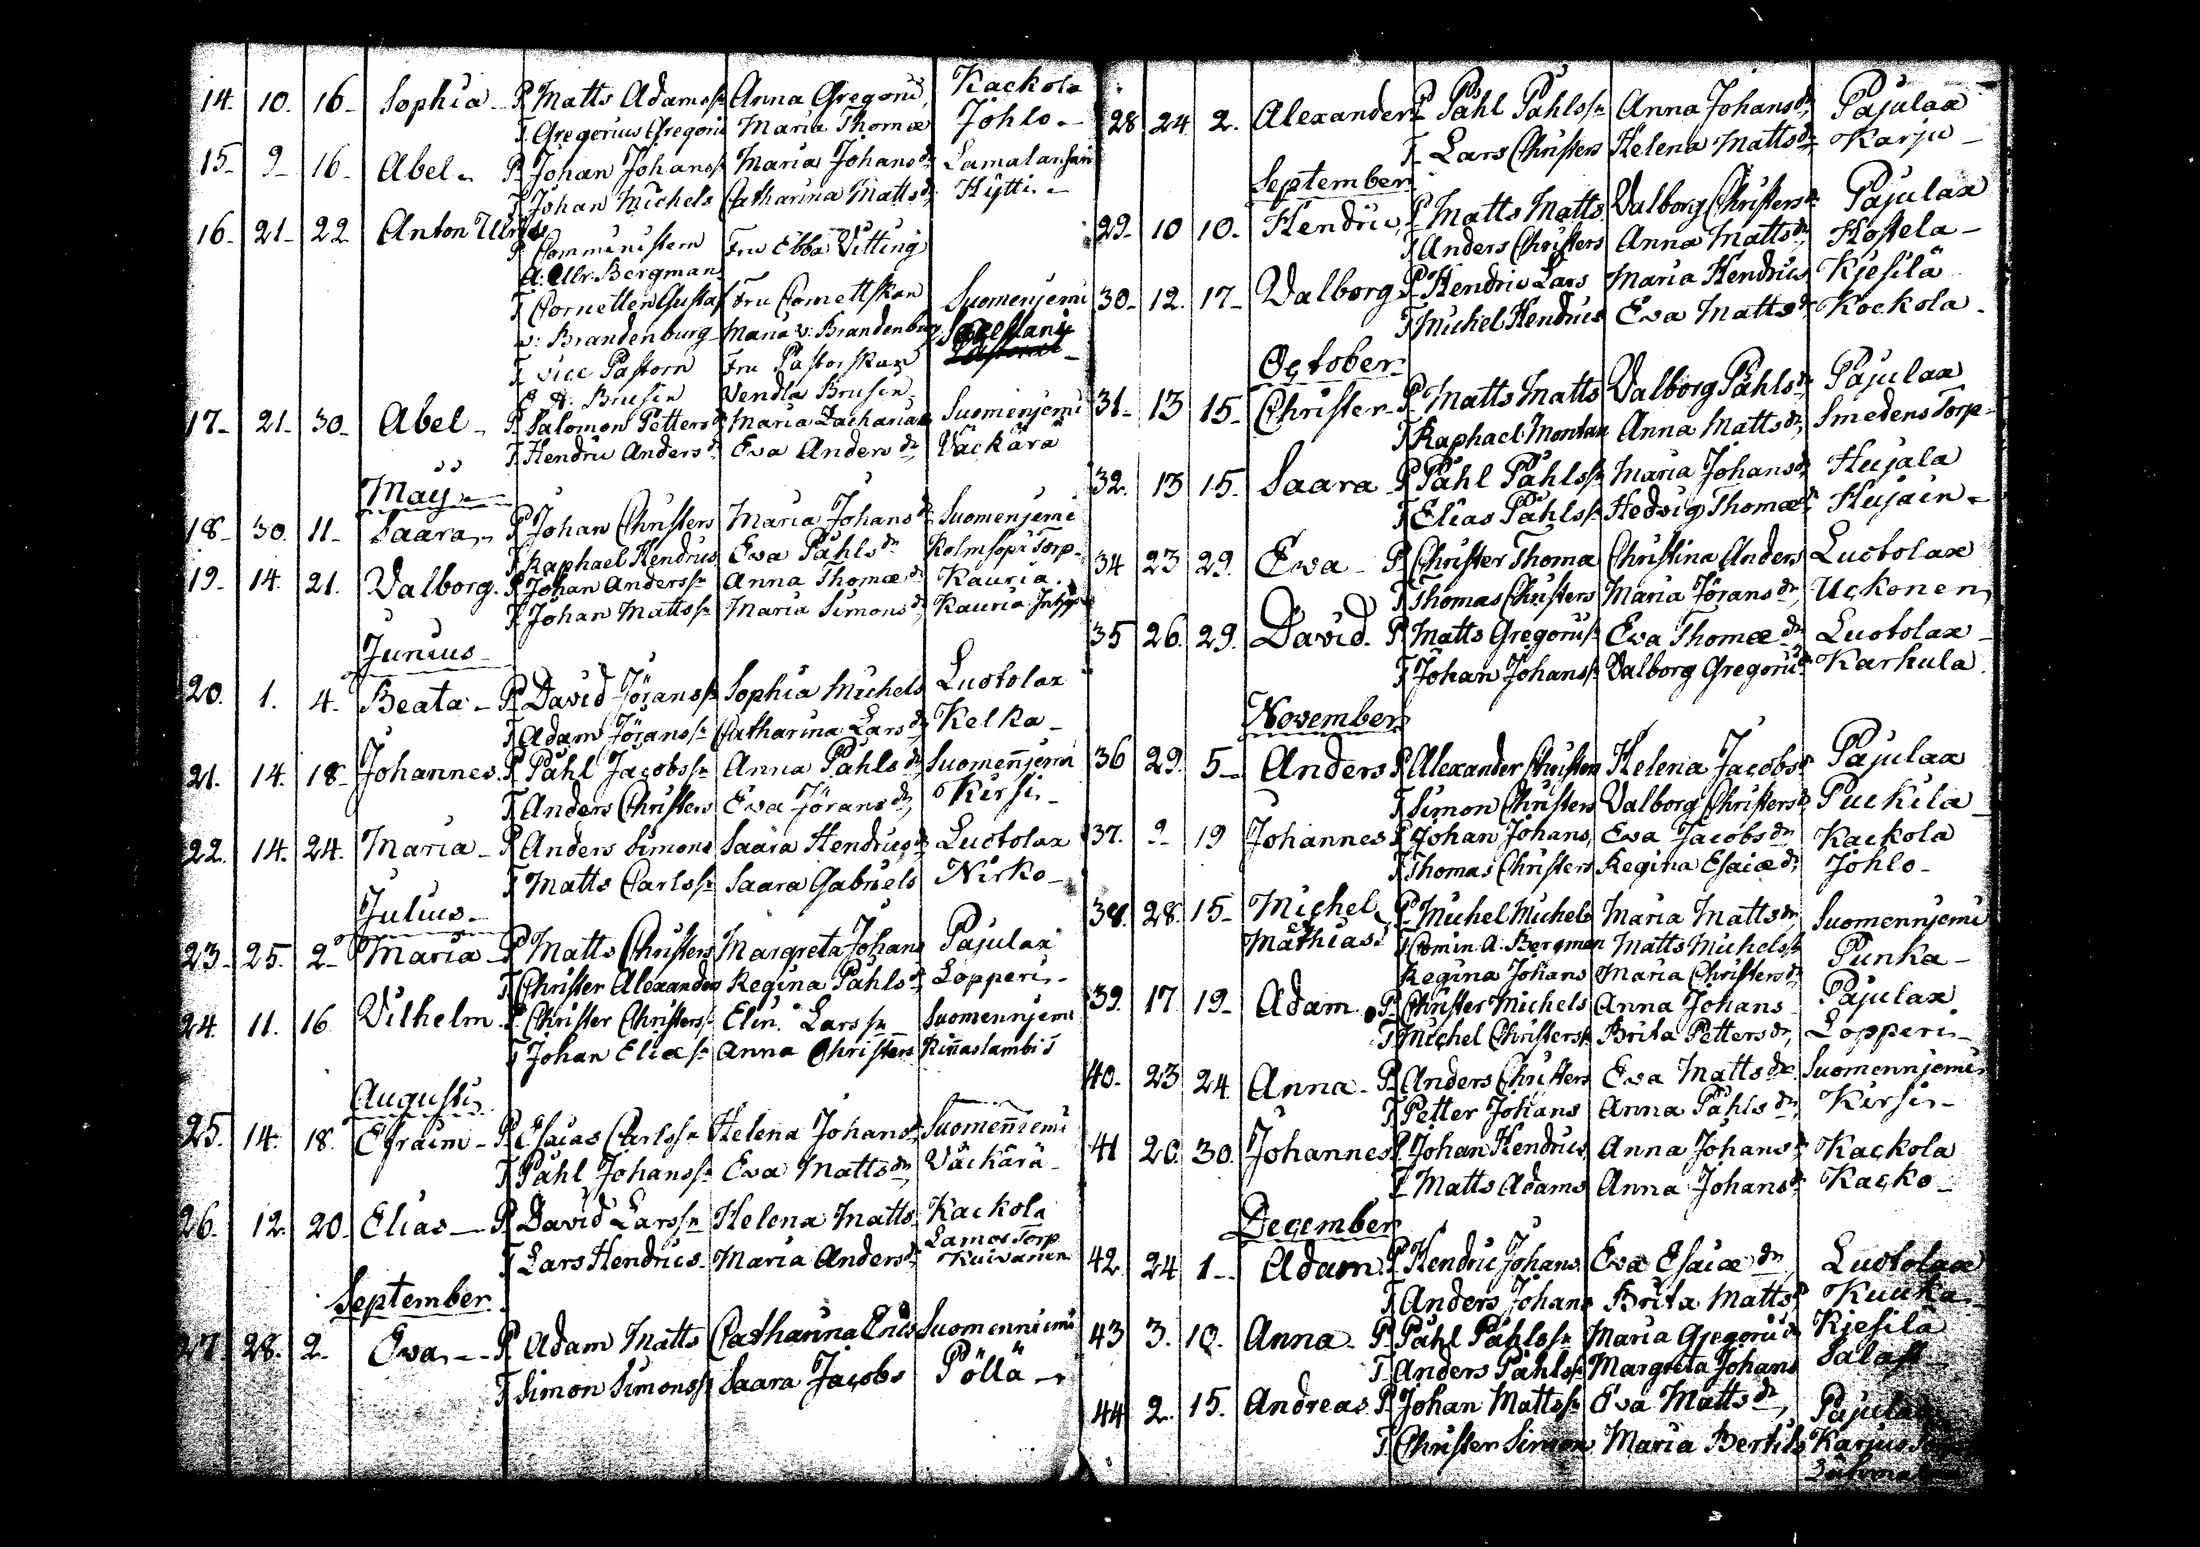 14. 10. 16. Sophia P. Matts Adamss: Anna Gregorii Kackola
T. Gregorius Gregorii Maria Thomæ Johlo
15. 9. 16. Abel P. Johan Johanss: Maria Johansdr
T. Johan Michels Catharina Mattsdr Hytti
16. 21. 22 Anton
P. Comministern Fru Ebba Vitting
A: Ulr: Bergman
T. Cornetten Gustaf Fru Cornettskan Suomenjemi
v: Brandenburg Maria v: Brandenburg
T. vice Pastorn Fru Pastorskan
A: Brusin Vendla Brusin
17. 21. 30. Abel P. Salomon Petters Maria Zachariæ Suomenjemi
T. Hendric Anders Eva Andersdr Väckärä
May
18. 30. 11. Saara P. Johan Christers Maria Johansdr Suomenjemi
T. Raphael Hendrics Eva Påhlsdr Torp
19. 14. 21. Valborg P. Johan Anderss: Anna Thomædr Kauria
T. Johan Mattss: Maria Simonsdr Kauria
Junius
20. 1. 4. Beata P. David Jöranss: Sophia Michels Luotolax
T. Adam Jöranss: Catharina Larsdr Kelka
21. 14. 18. Johannes P. Påhl Jacobss: Anna Påhlsdr Suomenjemi
T. Anders Christers Eva Jöransdr Kirsi
22. 14. 24. Maria P. Anders Simons Saara Hendricsdr Luotolax
T. Matts Carlss: Saara Gabriels Nirko
Julius
23. 25. 2. Maria P. Matts Christers Margreta Johans Pajulax
T. Christer Alexanders Regina Påhlsdr Lopperi
24. 11. 16. Vilhelm P. Christer Christers Elin Larss: Suomennjemi
T. Johan Eliæs: Anna Christers
Augusti
25. 14. 18. Efraim P. Esaias Carlss: Helena Johansdr Suomeniemi
T. Påhl Johanss: Eva Mattsdr Väckärä
26. 12. 20. Elias P. David Larss: Helena Matts Kackola
T. Lars Hendrics Maria Andersdr Torp Kuivanen
September
27. 28. 2. Eva P. Adam Matts Catharina Erics Suomenniemi
T. Simon Simonss: Saara Jacobs Pöllä
28 24. 2. Alexander P. Påhl Påhlss: Anna Johansdr Pajulax
T. Lars Christers Helena Mattsdr Karju
September
29. 10 10. Hendric P. Matts Matts Valborg Christersdr Pajulax
T. Anders Christers Anna Mattsdr Hostela
30. 12. 17. Valborg P. Hendric Lars Maria Hendrics Kjesilä
T. Michel Hendrics Eva Mattsdr Kockola
October
31. 13 15. Christer P. Matts Matts Valborg Påhlsdr Pajulax
T. Raphael Montan Anna Mattsdr Smedens Torp
32. 13 15. Saara P. Påhl Påhlss: Maria Johansdr Hujala
T. Elias Påhlss: Hedvig Thomædr Hujain
34 23 29. Eva P. Christer Thomæ Christina Anders Luotolax
T. Thomas Christers Maria Jöransdr Uckonen
35 26. 29. David P. Matts Gregoriis: Eva Thomædr Luotolax
T. Johan Johanss: Valborg Gregoriidr Karhula
November
36 29. 5. Anders P. Alexander Christers Helena Jacobsdr Pajulax
T. Simon Christers Valborg Christersdr Puckila
37. 9. 19 Johannes P. Johan Johans Eva Jacobsdr Kackola
T. Thomas Christers Regina Esaiædr Johlo
38. 28. 15. Michel P. Michel Michels Maria Mattsdr Suomennjemi
Mathias T. Comin. A: Bergman Matts Michelss: Punka
Regina Johans Maria Christersdr
39. 17. 19. Adam P. Christer Michels Anna Johans Pajulax
T. Michel Christerss: Brita Pettersdr Lopperi
40. 23 24. Anna P. Anders Christers Eva Mattsdr Suomennjemi
T. Petter Johans Anna Påhlsdr Kirsi
41 20. 30. Johannes P. Johan Hendrics Anna Johans Kackola
T. Matts Adams Anna Johansdr Kacko
December
42. 24 1. Adam P. Hendric Johans Eva Esaiædr Luotolax
T. Anders Johans Brita Matts Kuuka
43 3. 10. Anna P. Påhl Påhlss: Maria Gregoriidr Kjesilä
T. Anders Påhlss: Margreta Johans
44 2. 15. Andreas P. Johan Mattss: Eva Mattsdr Pajulax
T. Christer Simons Maria Bertils Karjus